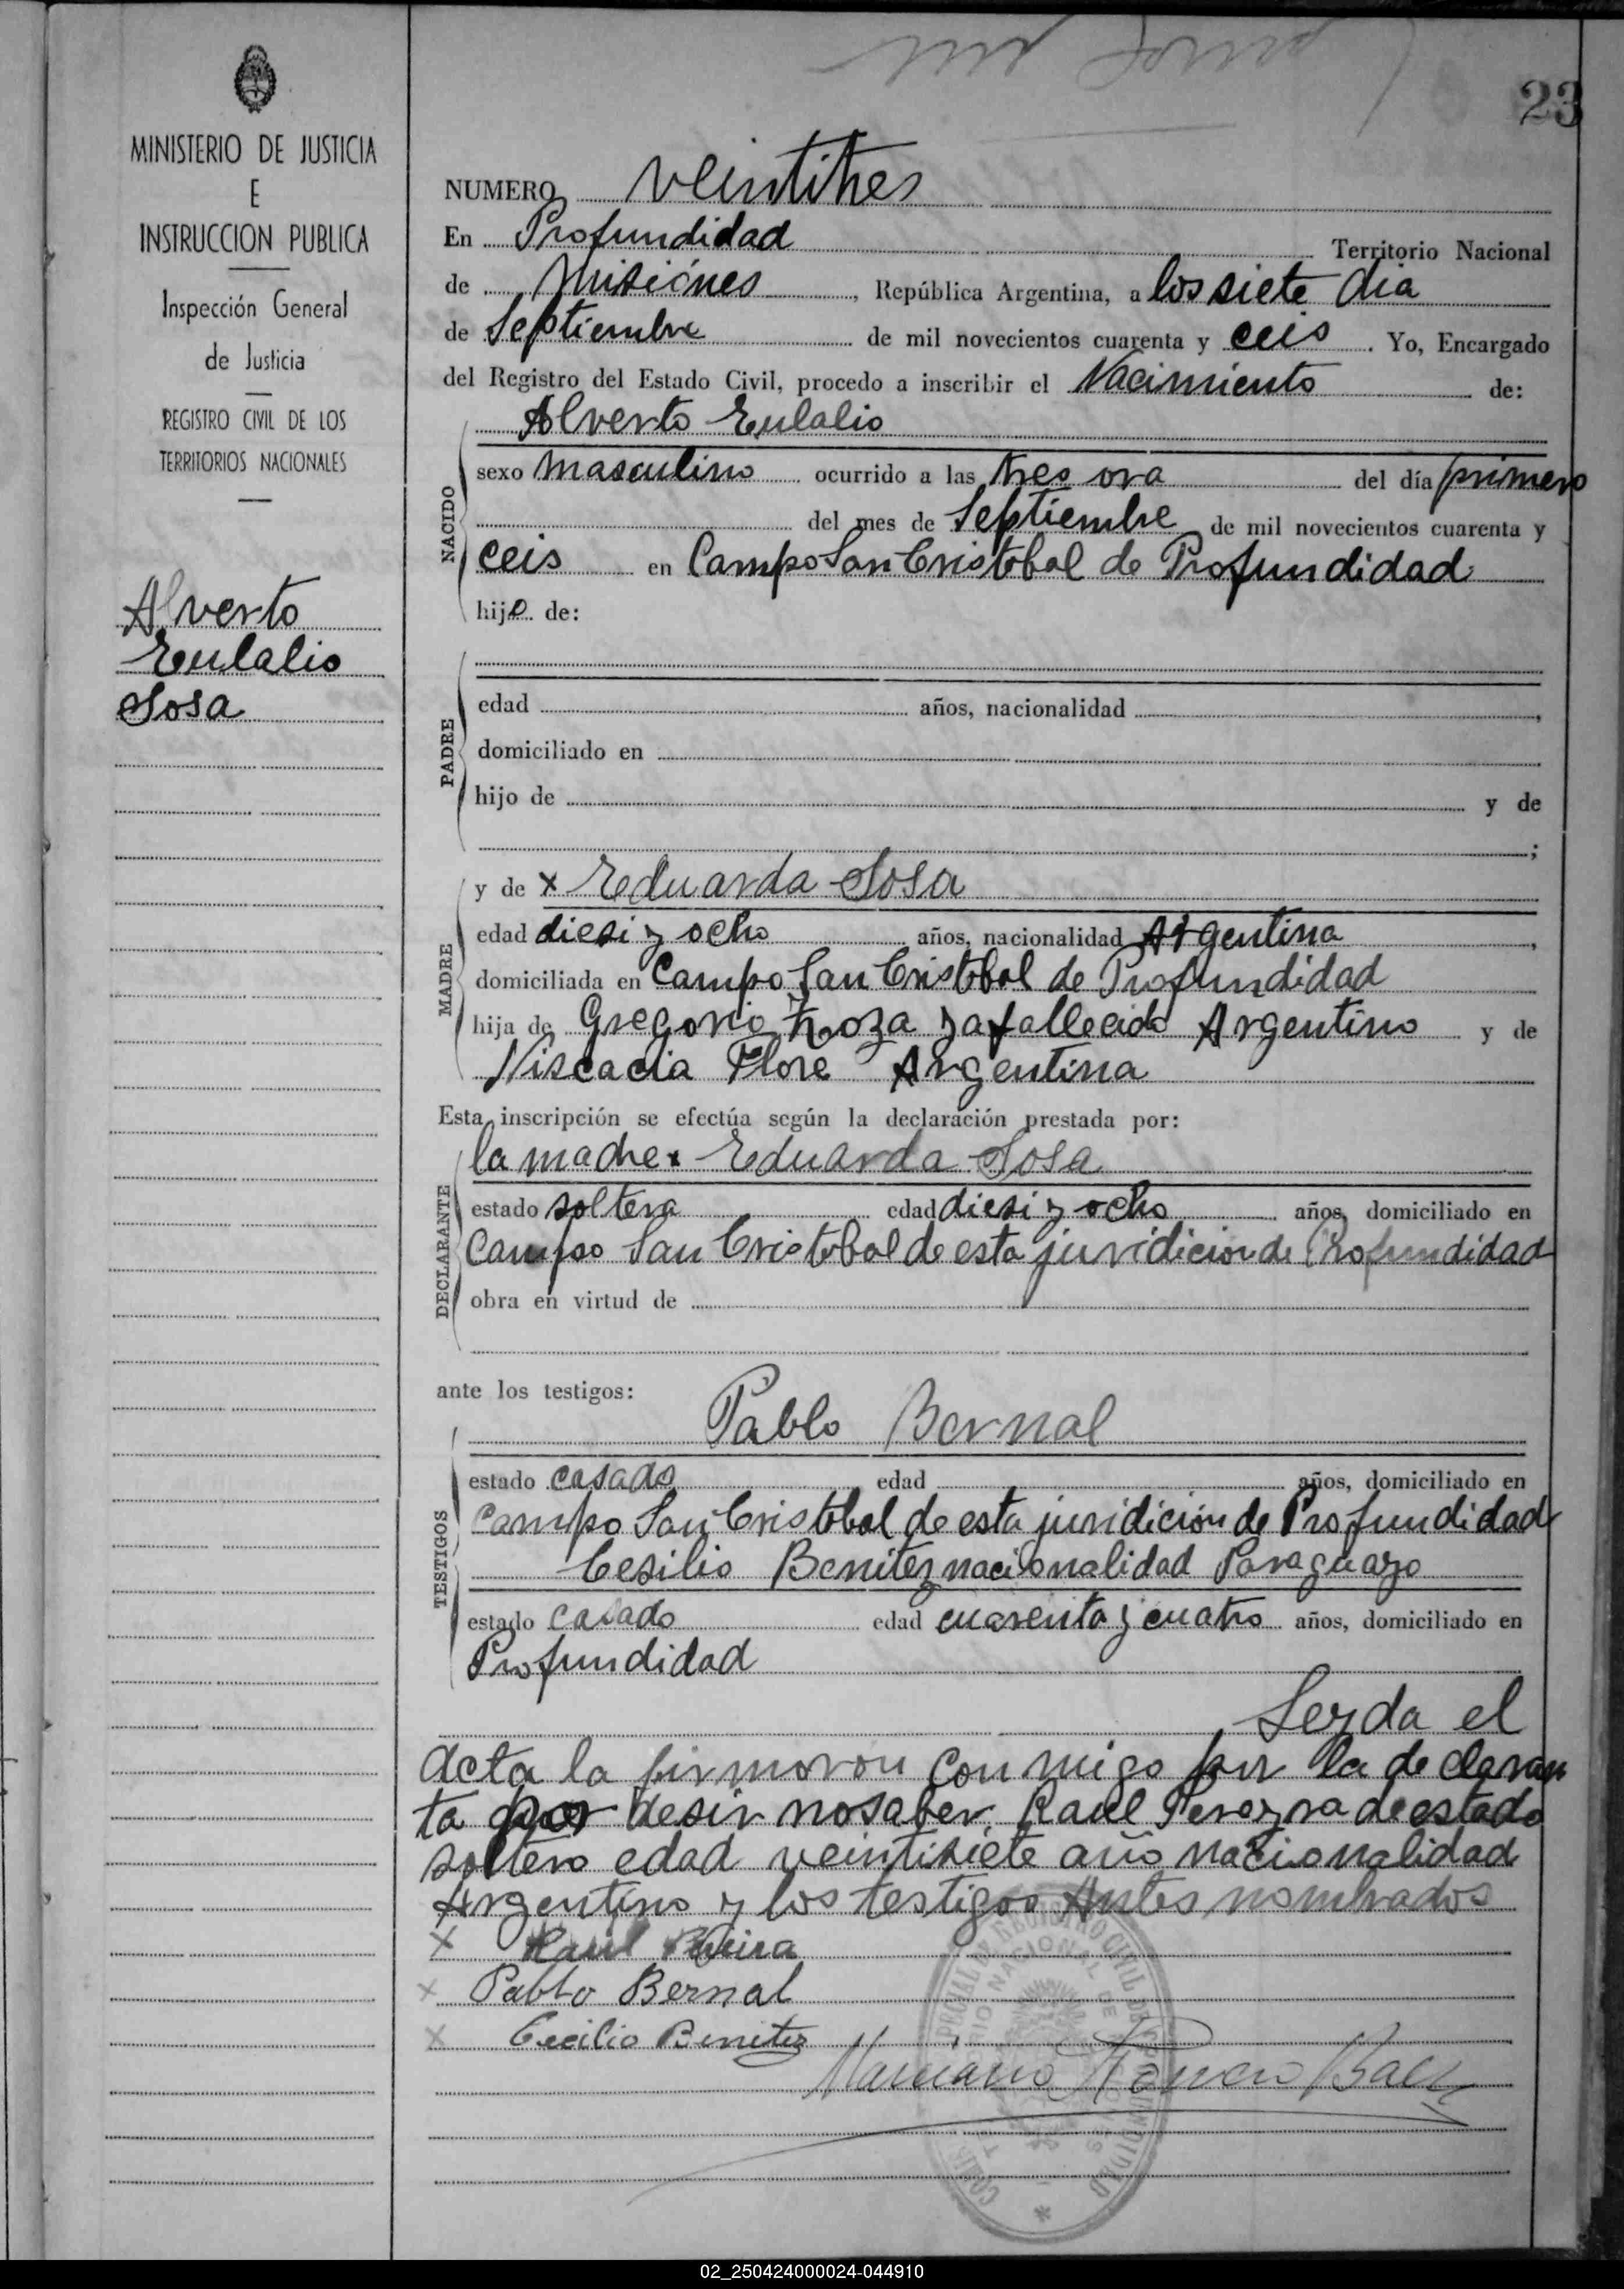 23
MINISTERIO DE JUSTICIA
E
INSTRUCCION PUBLICA
Inspección General
de Justicia
REGISTRO CIVIL DE LOS
TERRITORIOS NACIONALES
Alverto
Eulalio
Sosa
NUMERO veintitres
En Profundidad Territorio Nacional
de Misiónes, República Argentina, a los siete dia
de Septiembre de mil novecientos cuarenta y ceis. Yo, Encargado
del Registro del Estado Civil, procedo a inscribir el Nacimiento de:
NACIDO
Alverto Eulalio
sexo masculino ocurrido a las tres ora del día primero
del mes de Septiembre de mil novecientos cuarenta y
ceis en Campo San Cristobal de Profundidad
hijo de:
PADRE
edad años, nacionalidad,
domiciliado en
hijo de y de
;
MADRE
y de x Eduarda Sosa
edad diesi y ocho años, nacionalidad Argentina,
domiciliada en Campo San Cristobal de Profundidad
hija de Gregorio ya fallecido Argentino y de
Flore Argentina
Esta inscripción se efectúa según la declaración prestada por:
DECLARANTE
la madre x Eduarda Sosa
estado soltera edad diesi y ocho años, domiciliado en
Campo San Cristobal de esta juridicion de Profundidad
obra en virtud de
ante los testigos:
TESTIGOS
Pablo Bernal
estado casado edad años, domiciliado en
Campo San Cristobal de esta juridición de Profundidad
Cesilio Benitez nacionalidad Paraguayo
estado casado edad cuarenta y cuatro años, domiciliado en
Profundidad
el
acta la firmoron conmigo por la declaran
ta por desir no saber. Raul de estado
soltero edad veintisiete año nacionalidad
Argentino y los testigos Antes nombrados
x Raul
x Pablo Bernal
x Cecilio Benitez
Baez
02_250424000024-044910